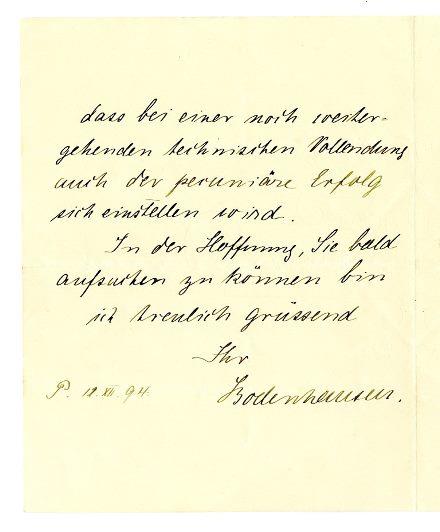 dass bei einer noch weiter-
gehenden technischen Vollendung
auch der pecuniäre Erfolg
sich einstellen wird.
In der Hoffnung, Sie bald
aufsuchen zu können bin
ich treulich grüssend
Ihr
Bodenhausen.
P. 12. XII. 94.